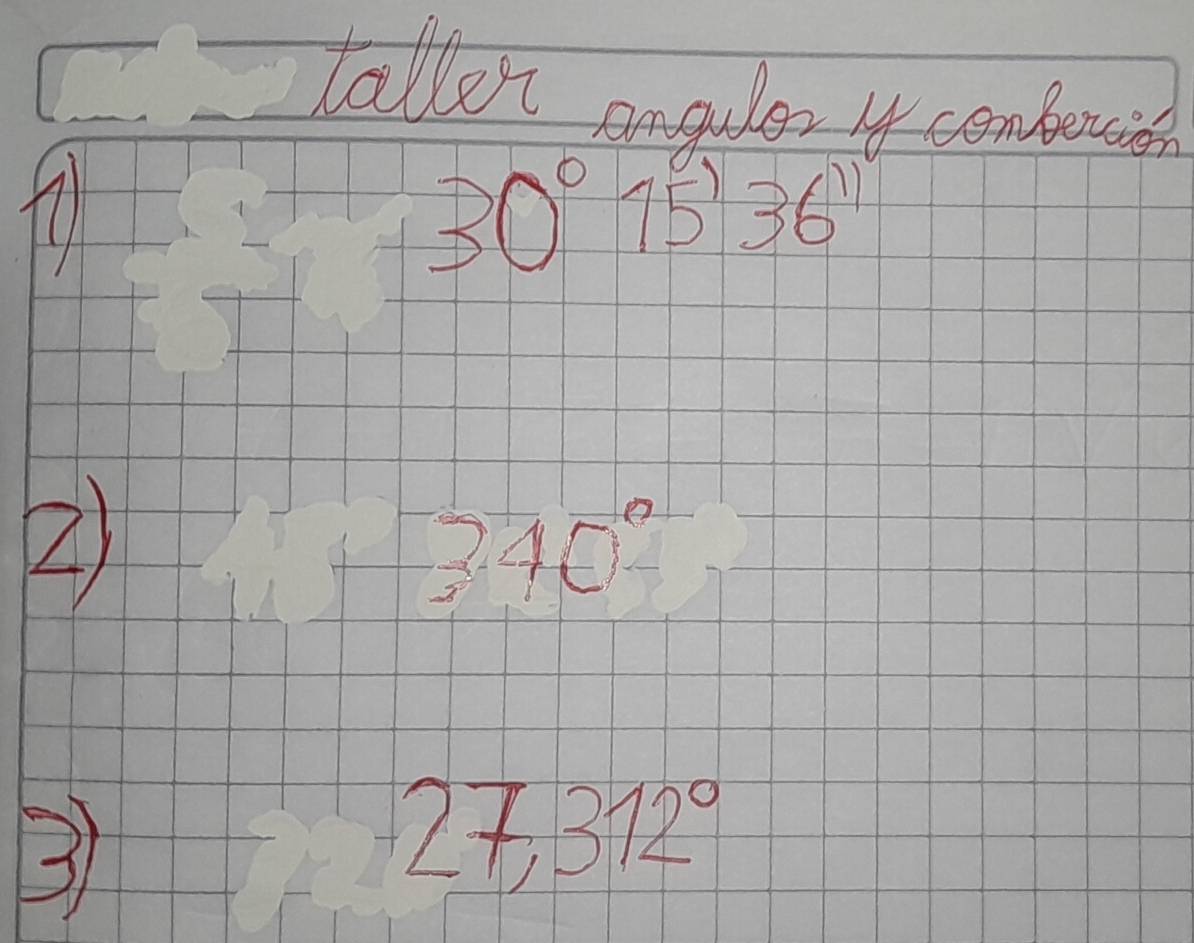 taller angulos y comberción
1) 30° 15' 36''
2) 340°
3) 27,312°